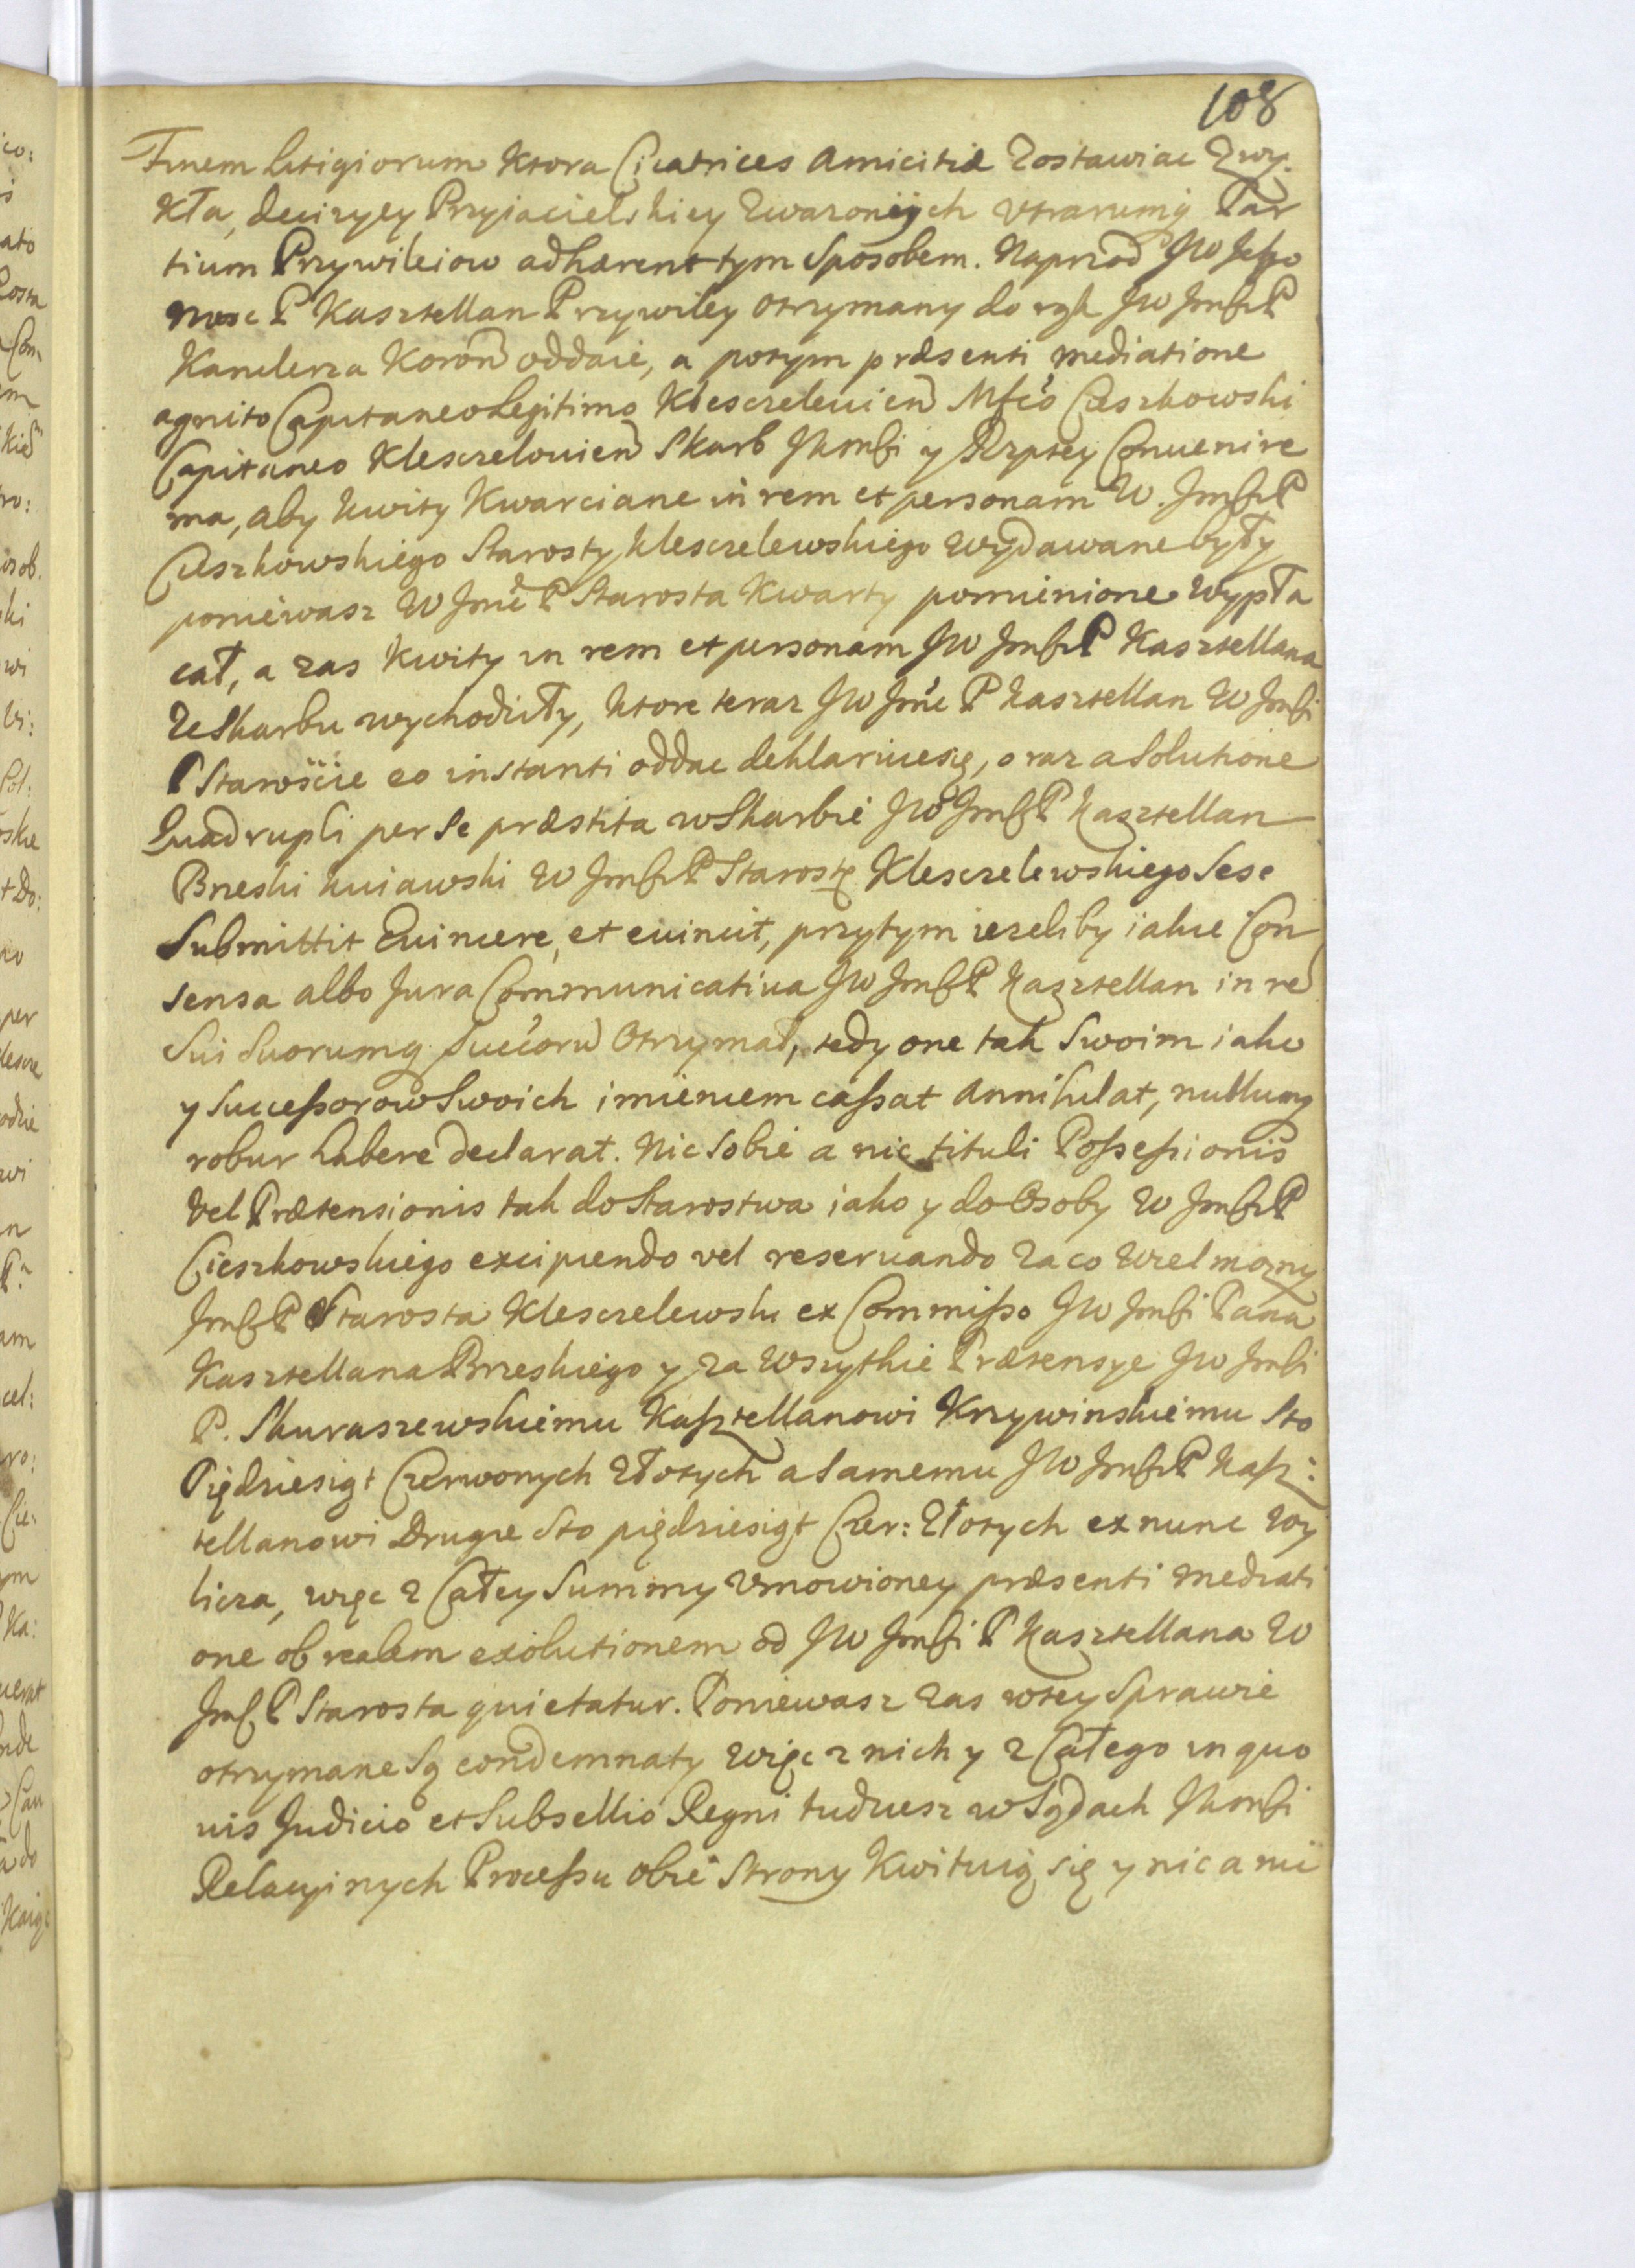 108
Finem litigiorum ktora Cicatrices Amicitiæ Zostawiac Zwy-
kła, decizyey Przyiacielskiey Zwaroniych Vtrarumq Par
tium Przywileiow adhærent tym Sposobem. Naprzod JW Jego
Mosc P Kasztellan Przywiley otrzymany do rąk JW JmśćP
Kanclerza Koron oddaie, a potym præsenti mediatione
agnito Capitaneo Legitimo Klesczelevien Mfco Cieszkowski
Capitaneo Klesczelouien Skarb JKmśći y Rzptey Conuenire
ma, aby kwity Kwarciane in rem et personam W. JmśćP
Cieszkowskiego Starosty Klesczelewskiego wydawane były
poniewasz W Jmć P Starosta Kwarty pomienione wypła
cał, a zas kwity in rem et personam JW JmśćP Kasztellana
ze Skarbu wychodziły, ktore teraz JW Jmć P Kasztellan W Jmśći
P Starośćie eo instanti oddac deklaruiesię, oraz a Solutione
Quadrupli per Se præstita w Skarbie JW JmśćP Kasztellan
Brzeski kuiawski W JmśćP Starostę Klesczelewskiego Sese
Submittit Euincere, et euincit, przytym iezeliby iakie Con
sensa albo Jura Communicatiua JW JmśćP Kasztellan in re
Sui Suorumq Succorū Otrzymał, tedy one tak Swoim iako
y Successorow Swoich imieniem cassat Annihilat, nullumq
robur habere declarat. Nic Sobie a nic tituli Possessionis
Vel Prætensionis tak do Starostwa iako y do Osoby W JmśćP
Cieszkowskiego excipiendo vel reseruando Za co Wielmozny
JmśćP Starosta Klesczelewski ex Commisso JW Jmśći Pana
Kasztellana Brzeskiego y za Wszytkie Prætensye JW Jmśći
P. Skuraszewskiemu Kasztellanowi Krzywinskiemu Sto
Piędziesiąt Czerwonych Złotych a Samemu JW JmśćP Kasz:
tellanowi Drugie Sto piędziesiąt Czer: Złotych ex nunc wy
licza, więc z Całey Summy Vmowioney præsenti mediati
one ob realem exolutionem od JW Jmśći P Kasztellana W
Jmść P Starosta quietatur. Poniewasz zas wtey Sprawie
otrzymane Są condemnaty więc z nich y z Całego in quo
uis Judicio et Subsellio Regni tudziesz w Sądach JKmśći
Relacyinych Processu obie Strony Kwituią się y nic a nic